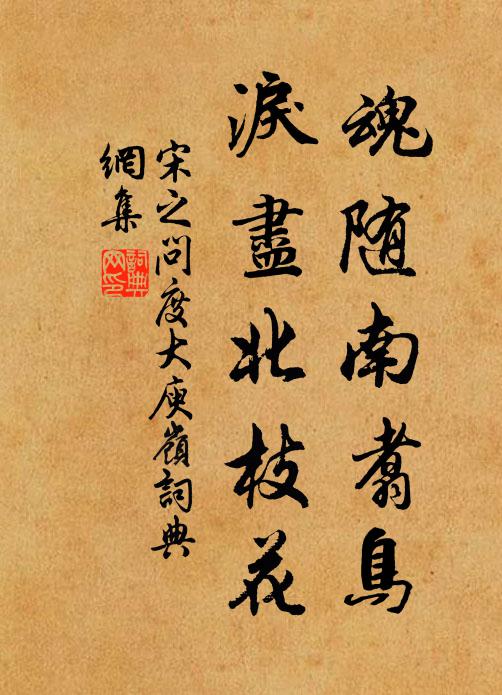 魂随南翥鳥
淚盡北枝花
宋之问度大庾嶺詞典
網集
詞典
网印